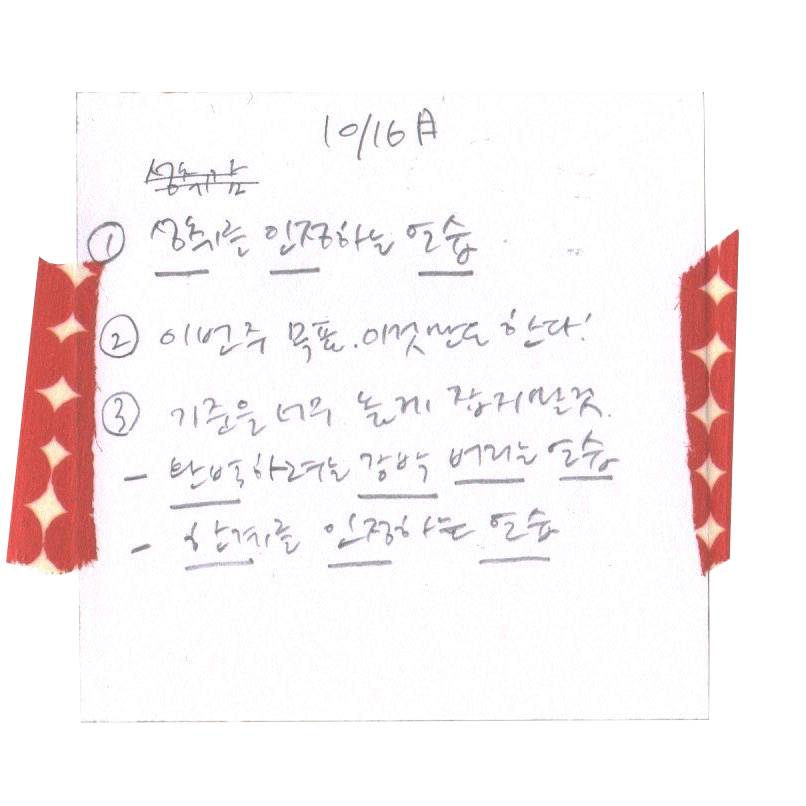 10/16 月
성취감
① 성취를 인정하는 연습
② 이번주 목표. 이것만도 한다!
③ 기준을 너무 높게 잡지말것.
- 탄복하려는 강박 버리는 연습
- 한계를 인정하는 연습